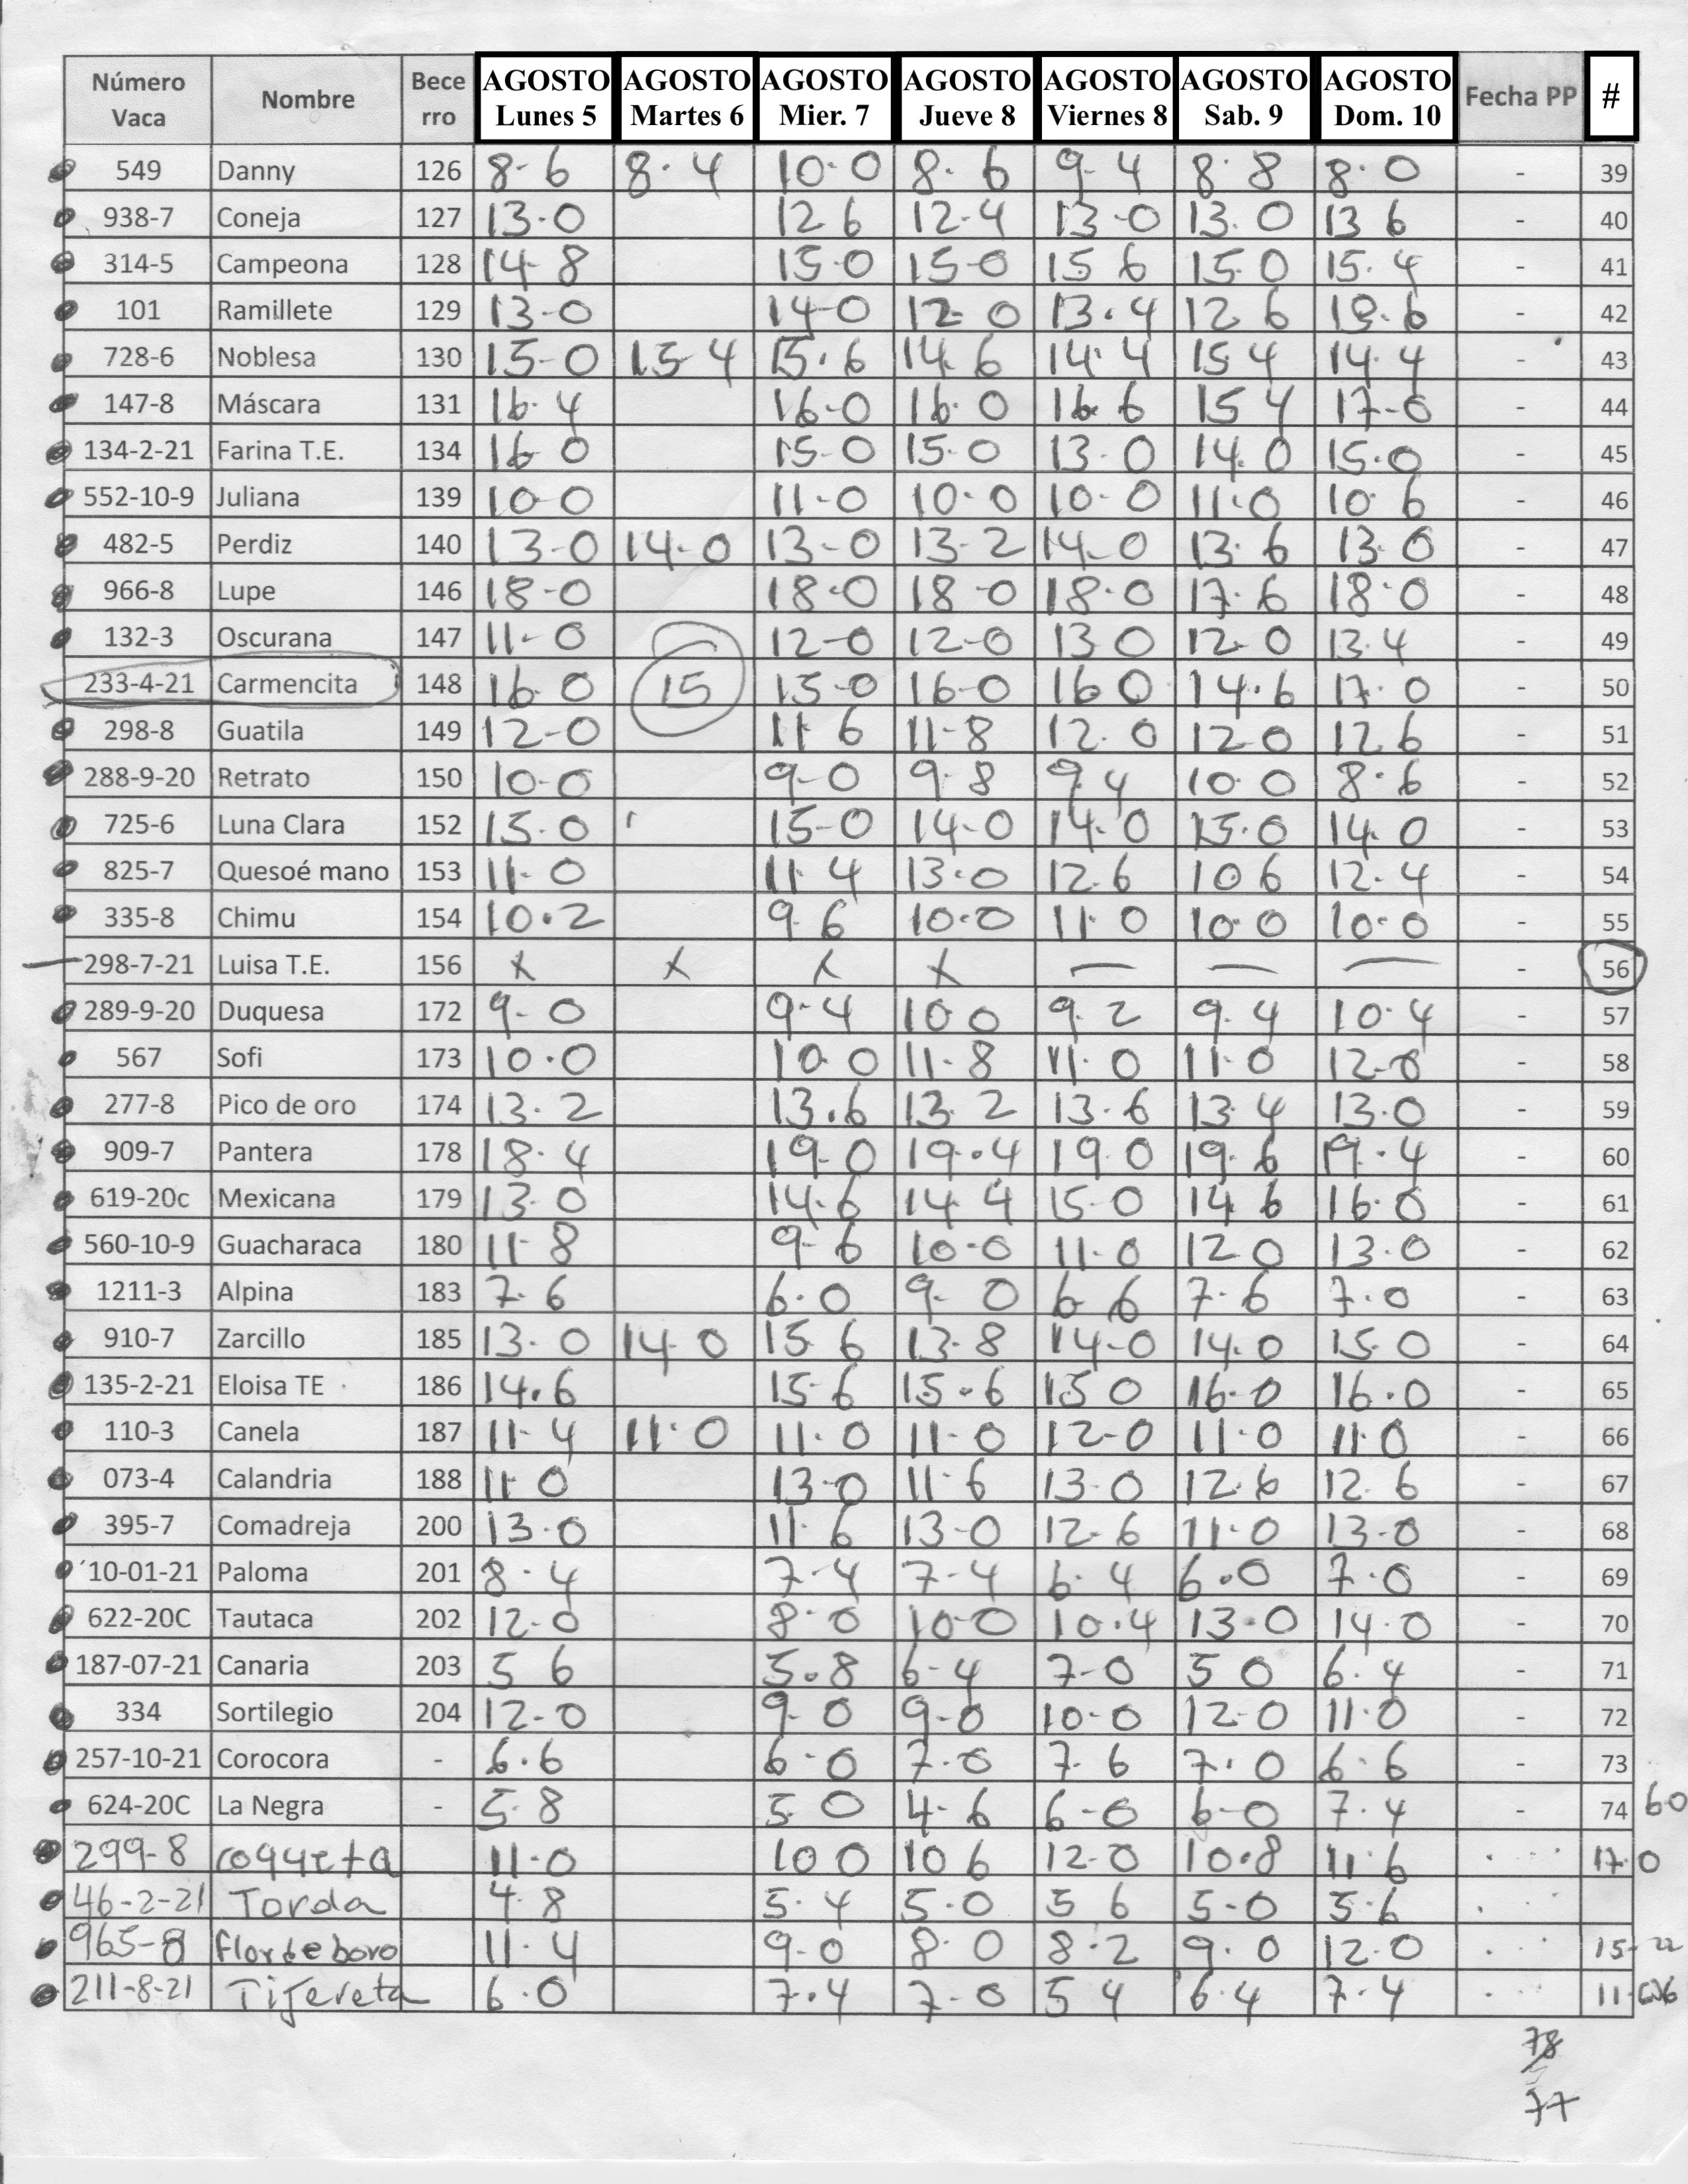 Número Vaca Nombre Bece rro AGOSTO Lunes 5 AGOSTO Martes 6 AGOSTO Mier. 7 AGOSTO Jueve 8 AGOSTO Viernes 8 AGOSTO Sab. 9 AGOSTO Dom. 10 Fecha PP #
549 Danny 126 8.6 8.4 10.0 8.6 9.4 8.8 8.0 - 39
938-7 Coneja 127 13.0 12 6 12.4 13.0 13.0 13 6 - 40
314-5 Campeona 128 14-8 15-0 15-0 15 6 15.0 15.4 - 41
101 Ramillete 129 13-0 14-0 12-0 13.4 12 6 - 42
728-6 Noblesa 130 15-0 15-4 15.6 14.6 14.4 15 4 14.4 - 43
147-8 Máscara 131 16.4 16-0 16.0 16.6 15 4 17-0 - 44
134-2-21 Farina T.E. 134 16 0 15-0 15.0 13.0 14.0 15.0 - 45
552-10-9 Juliana 139 10-0 11-0 10.0 10.0 11.0 10.6 - 46
482-5 Perdiz 140 13-0 14-0 13-0 13-2 14-0 13.6 13.0 - 47
966-8 Lupe 146 18-0 18.0 18-0 18.0 17.6 18.0 - 48
132-3 Oscurana 147 11-0 12-0 12-0 13 0 12-0 13.4 - 49
233-4-21 Carmencita 148 16.0 15 15-0 16-0 16 0 14.6 17.0 - 50
298-8 Guatila 149 12-0 11 6 11-8 12.0 12 0 12 6 - 51
288-9-20 Retrato 150 10-0 9-0 9.8 9.4 10.0 8.6 - 52
725-6 Luna Clara 152 15.0 15-0 14-0 14.0 15.0 14.0 - 53
825-7 Quesoé mano 153 11.0 11.4 13.0 12.6 10 6 12.4 - 54
335-8 Chimu 154 10.2 9.6 10.0 11.0 10.0 10.0 - 55
298-7-21 Luisa T.E. 156 x x x x — — — - 56
289-9-20 Duquesa 172 9-0 9.4 10 0 9.2 9.4 10.4 - 57
567 Sofi 173 10.0 10.0 11.8 11.0 11.0 12-0 - 58
277-8 Pico de oro 174 13.2 13.6 13.2 13.6 13.4 13.0 - 59
909-7 Pantera 178 18.4 19-0 19.4 19 0 19.6 19.4 - 60
619-20c Mexicana 179 13.0 14.6 14.4 15-0 14 6 16.0 - 61
560-10-9 Guacharaca 180 11.8 9-6 10.0 11.0 12 0 13.0 - 62
1211-3 Alpina 183 7.6 6.0 9.0 6-6 7.6 7.0 - 63
910-7 Zarcillo 185 13.0 14.0 15 6 13.8 14-0 14.0 15.0 - 64
135-2-21 Eloisa TE 186 14.6 15-6 15.6 15 0 16-0 16.0 - 65
110-3 Canela 187 11.4 11.0 11.0 11.0 12-0 11.0 11.0 - 66
073-4 Calandria 188 11.0 13-0 11.6 13.0 12.6 12.6 - 67
395-7 Comadreja 200 13.0 11.6 13-0 12-6 11.0 13.0 - 68
10-01-21 Paloma 201 8.4 7-4 7-4 6.4 6.0 7.0 - 69
622-20C Tautaca 202 12.0 8.0 10-0 10.4 13.0 14.0 - 70
187-07-21 Canaria 203 5 6 5.8 6-4 7-0 5 0 6.4 - 71
334 Sortilegio 204 12-0 9.0 9-0 10-0 12-0 11.0 - 72
257-10-21 Corocora - 6.6 6.0 7.0 7.6 7.0 6.6 - 73
624-20C La Negra - 5.8 5.0 4-6 6-0 6-0 7.4 - 74 60
299-8 coqueta 11.0 10 0 10 6 12-0 10.8 11.6 17.0
46-2-21 Torda 4.8 5.4 5.0 5 6 5-0 5.6
965-8 flordeboro 11.4 9-0 8.0 8.2 9.0 12.0 15-22
211-8-21 Tijereta 6.0 7.4 7-0 5 4 6.4 7.4 11
78
77